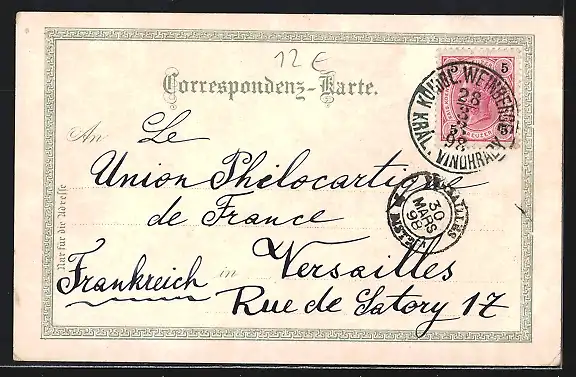 12 €
Correspondenz-Karte.
An Le
Union Philocartique
de France
Frankreich in Versailles
Rue de Satory 17
Nur für die Adresse
5
KÖNIGL. WEINBERGE
28
3
98
KRÁL. VINOHRADY
VERSAILLES
30
MARS
98